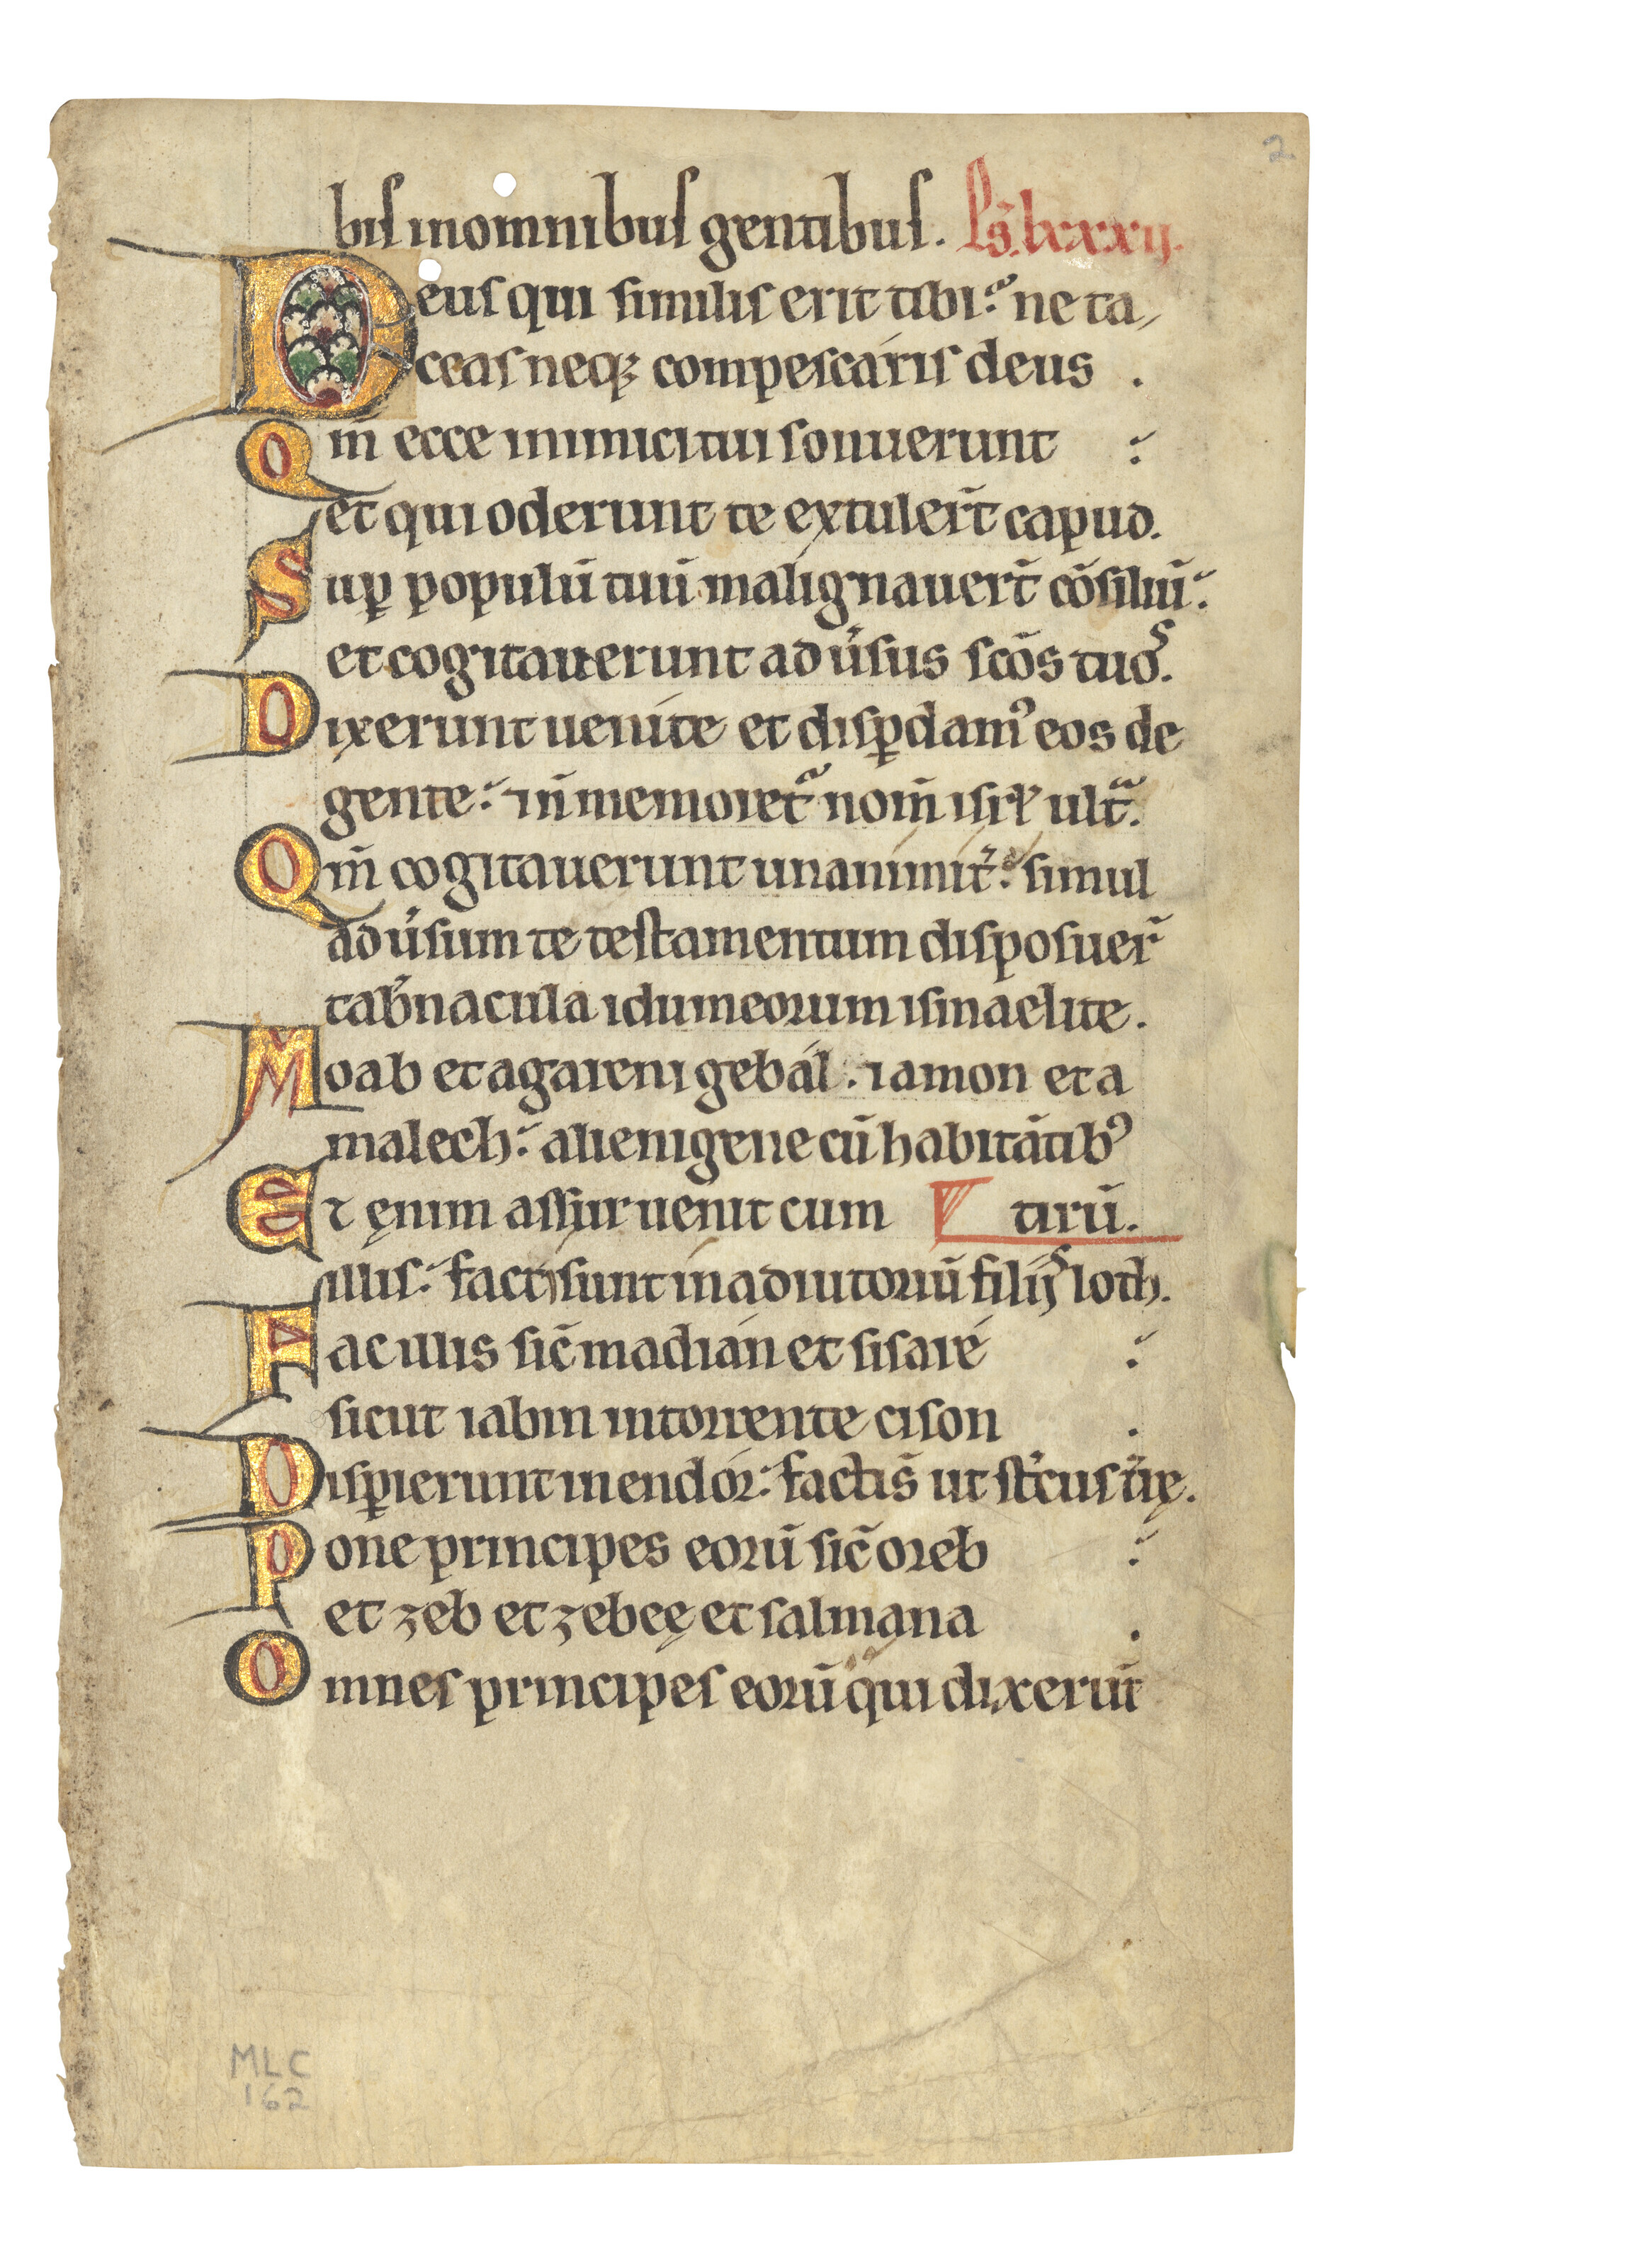 2
bis in omnibus gentibus. Ps̄. lxxxij.
Deus qui similis erit tibi: ne ta-
ceas neqꝫ compescáris deus .
Qm̄ ecce inimici tui sonuerunt :
et qui oderunt te extuler̄t capud.
Suꝑ populū tuū malignauer̄t cōsiliū:
et cogitauerunt aduͥsus scōs tuoˢ.
Dixerunt uenite et disꝑdamꝰ eos de
gente: ⁊ n̄ memoretᵃ nom̄ isrl̄ ultᵃ.
Qm̄ cogitauerunt unanimit̄: simul
aduͥsum te testamentum disposuer̄
tab̄nacula idumeorum ismaelite.
Moab et agareni gebál : ⁊ amon et a
malech: alienigene cū habitātibꝰ
Et ęnim assyr uenit cum tirū.
illis: facti sunt in adiutoriū filijˢ loth.
Fac illis sic̄ madián et sisaré :
sicut iabin in torrente cison .
Disꝑierunt in endór: facti s̄ ut st̄cus t̄rę.
Pone principes eorū sic̄ oreb :
et zeb et zebeę et salmana .
Omnes principes eorū qui dixerūt
MLC
162